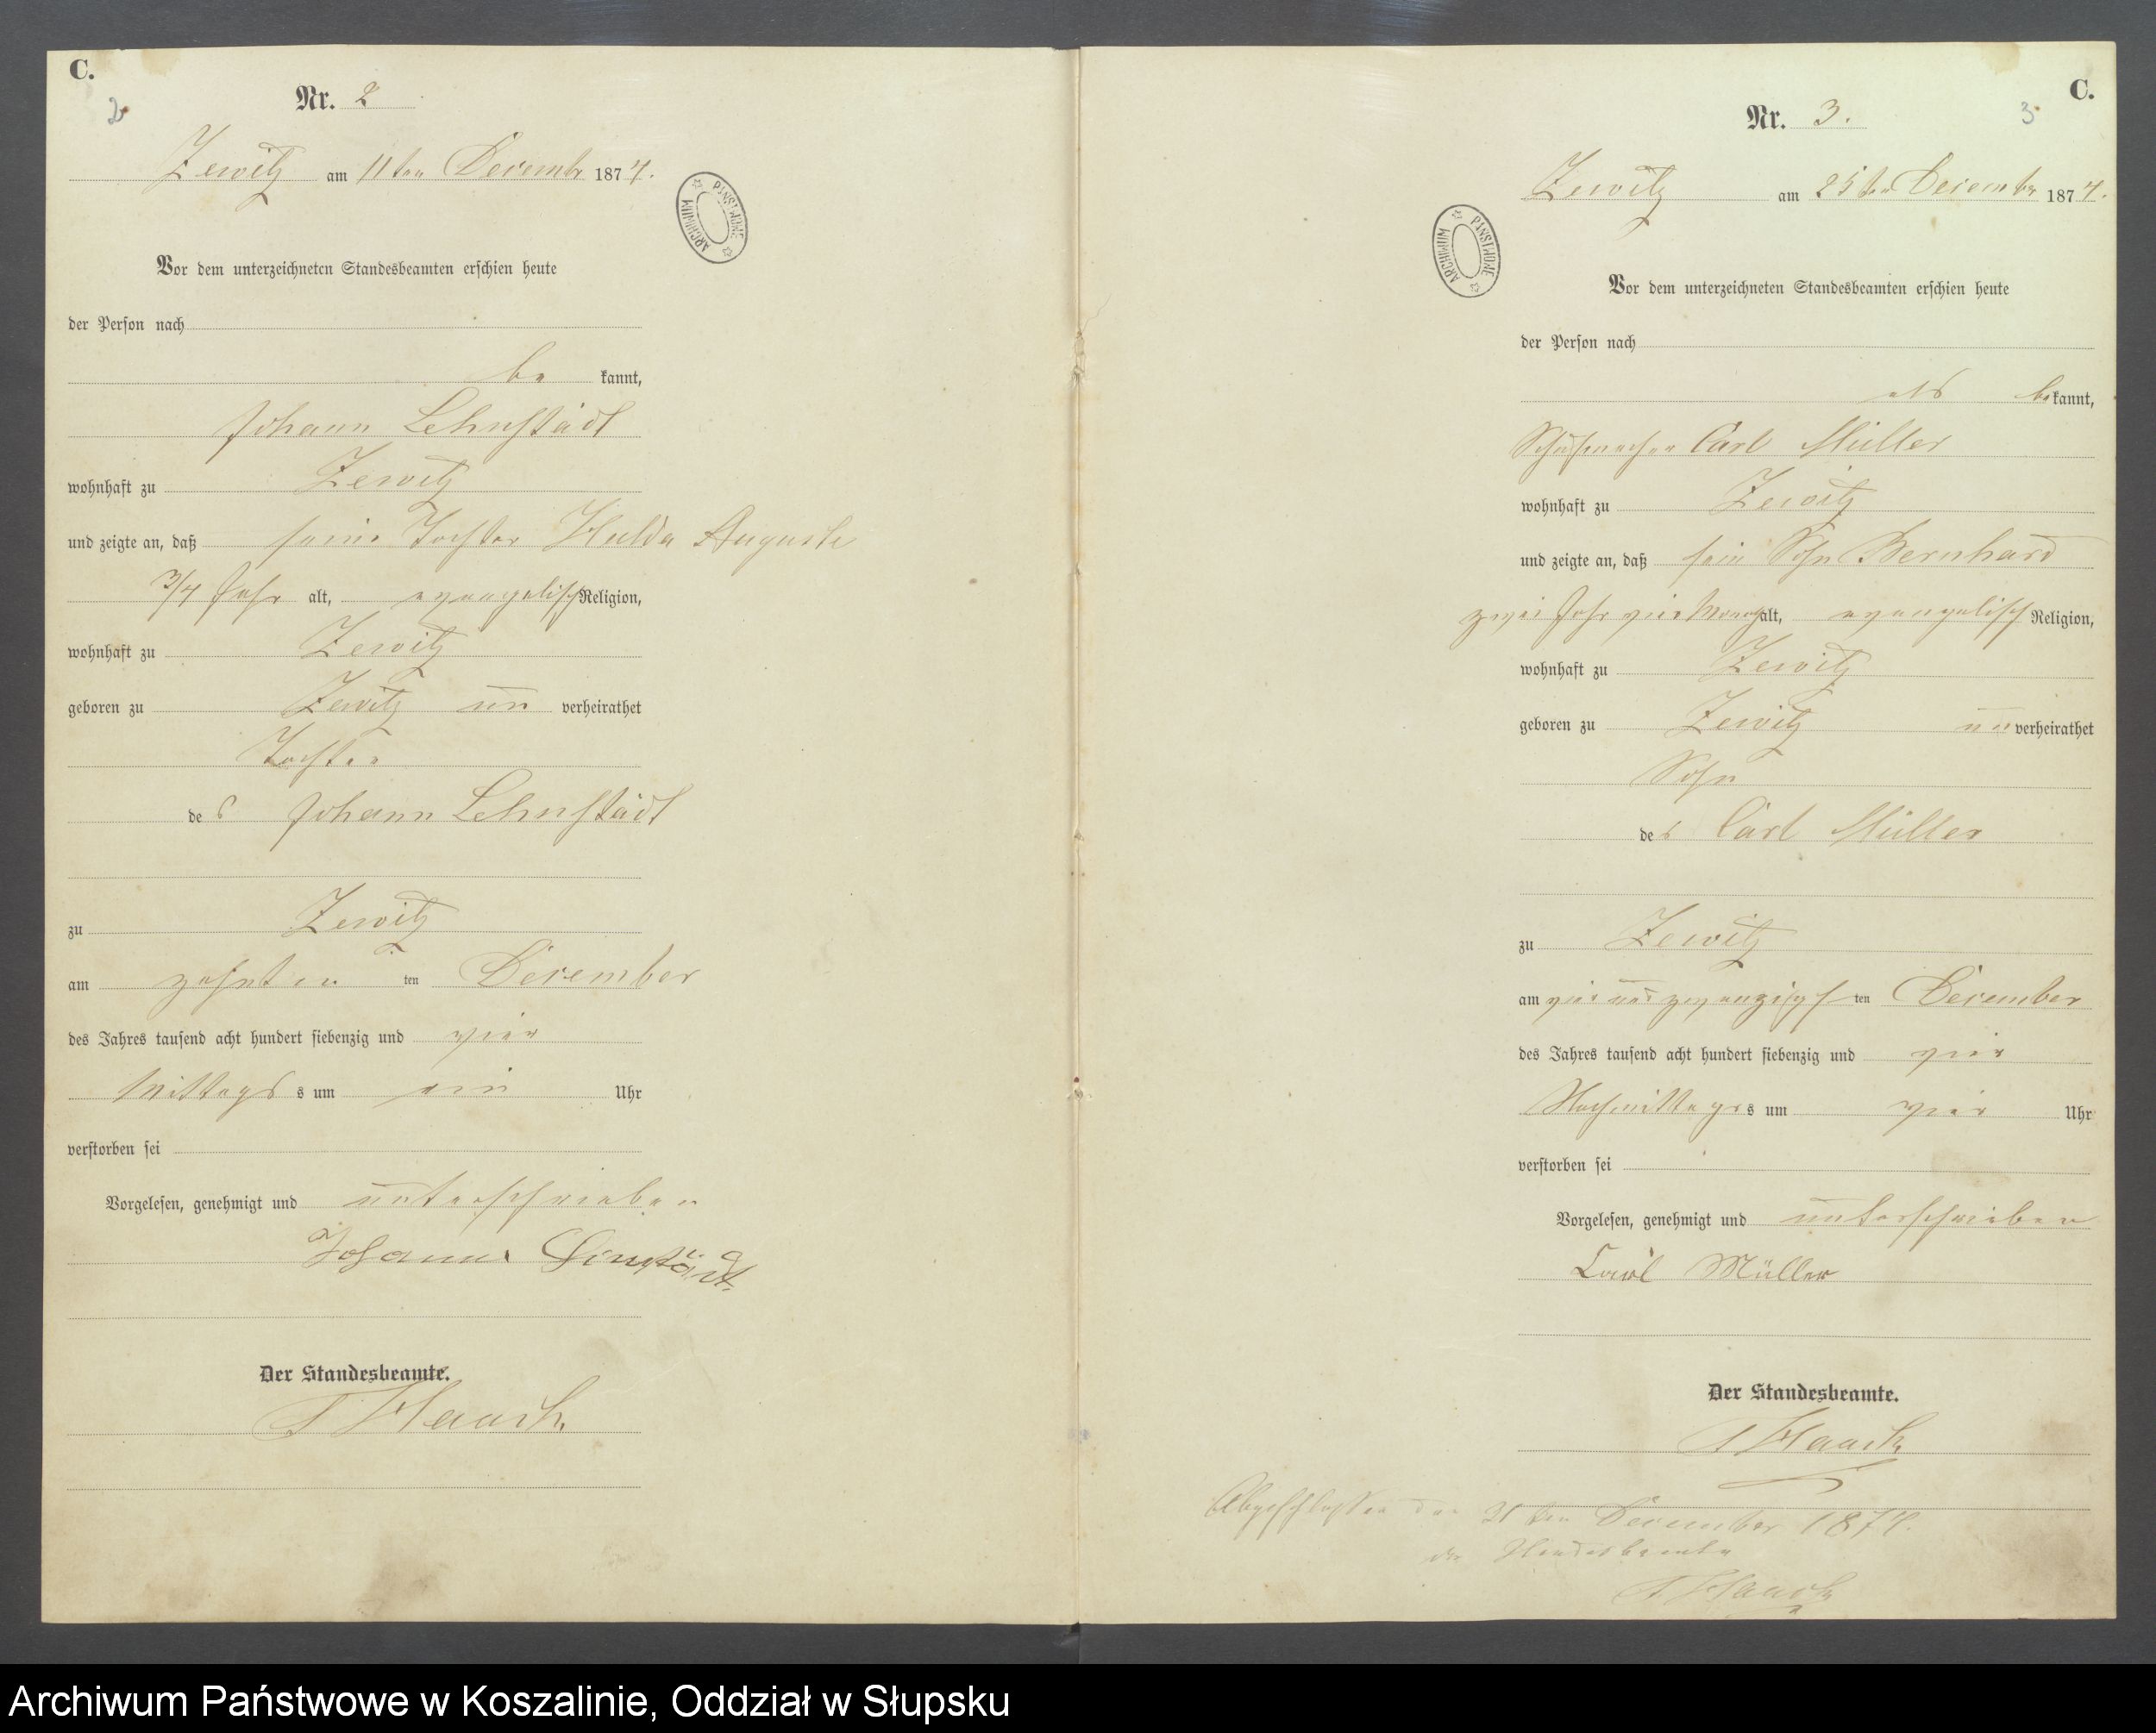 C.
2.
Nr. 2
Zewitz am 11ten Decembr 1874.
ARCHIWUM PAŃSTWOWE
Vor dem unterzeichneten Standesbeamten erschien heute
der Person nach
be kannt,
Johann Lehnstädt
wohnhaft zu Zewitz
und zeigte an, daß seine Tochter Hulda Auguste
3/4 Jahr alt, evangelisch Religion,
wohnhaft zu Zewitz
geboren zu Zewitz un verheirathet
Tochter
des Johann Lehnstädt
zu Zewitz
am zehnten ten December
des Jahres tausend acht hundert siebenzig und vier
Mittags s um ein Uhr
verstorben sei
Vorgelesen, genehmigt und unterschrieben
Johann
Der Standesbeamte.
Haack
C.
3.
Nr. 3.
Zewitz am 25ten December 1874.
ARCHIWUM PAŃSTWOWE
Vor dem unterzeichneten Standesbeamten erschien heute
der Person nach
als bekannt,
Schuhmacher Carl Müller
wohnhaft zu Zewitz
und zeigte an, daß sein Sohn Bernhard
zwei Jahr vier Monat alt, evangelisch Religion,
wohnhaft zu Zewitz
geboren zu Zewitz unverheirathet
Sohn
des Carl Müller
zu Zewitz
am vier und zwanzigst ten December
des Jahres tausend acht hundert siebenzig und vier
Nachmittags s um vier Uhr
verstorben sei
Vorgelesen, genehmigt und unterschrieben
Carl Müller
Der Standesbeamte.
Haack
Abgeschlossen den 31ten December 1874.
der Standesbeamte
Haack
Archiwum Państwowe w Koszalinie, Oddział w Słupsku